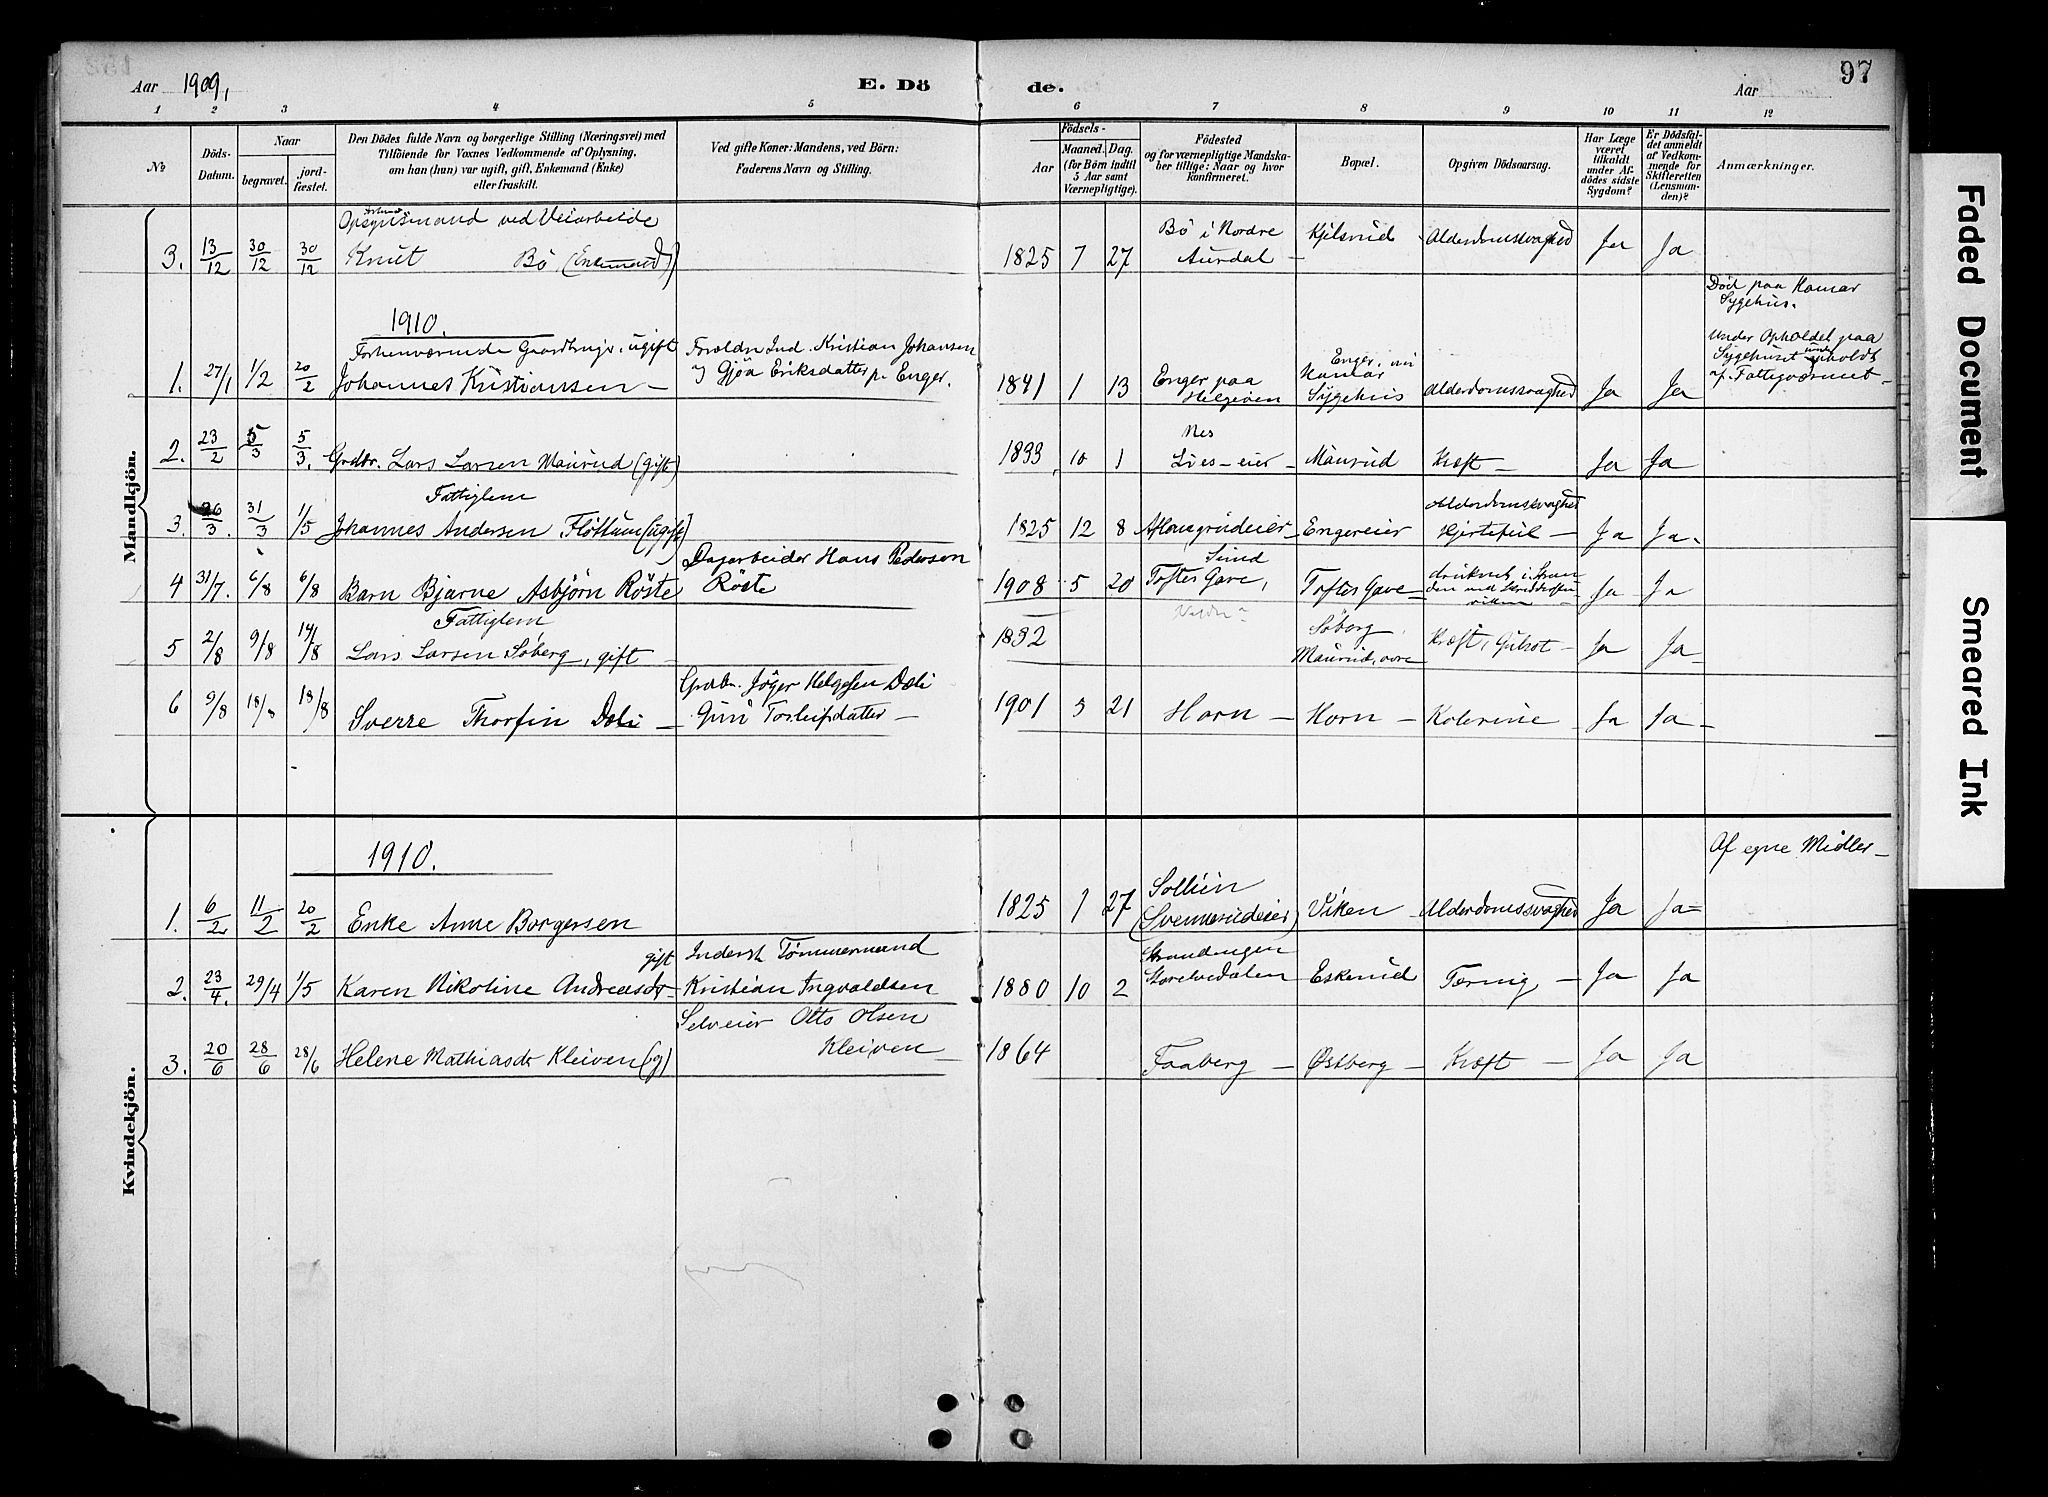 Aar 1909,
E. Döde.
Aar
97
1 2 3 4 5 6 7 8 9 10 11 12
No
Döds-Datum.
Naar
begravet.
jordfæstet.
Den Dödes fulde Navn og borgerlige Stilling (Næringsvei) med
Tilföiende for Voxnes Vedkommende af Oplysning,
om han (hun) var ugift, gift, Enkemand (Enke)
eller fraskilt.
Ved gifte Koner: Mandens, ved Börn:
Faderens Navn og Stilling.
Födsels-
Aar
Maaned. Dag.
(for Börn indtil
5 Aar samt
Værnepligtige).
Födested
og for værnepligtige Mandskaber
tillige: Naar og hvor
konfirmeret.
Bopæl.
Opgiven Dödsaarsag.
Har Læge
været
tilkaldt
under Afdödes
sidste
Sygdom?
Er Dödsfaldet
anmeldt
af Vedkommende
for
Skifteretten
(Lensmanden)?
Anmærkninger.
Mandkjön.
Opsynsmand ved Veiarbeide
3. 13/12 30/12 30/12 Knut Bö (Enkemand) 1825 7 27 Bö i Nordre Aurdal - Kjelsrud - Alderdomssvaghed Ja Ja
1910.
Død paa Hamar
Sygehus.
Under Opholdet paa
Sygehuset underholdt
af Fattigvæsenet -
Forhenværende Gaardbrug. ugift
1. 27/1 1/2 20/2 Johannes Kristiansen - Foreldr Ind. Kristian Johansen
og Gjöa Eriksdatter p. Enger. 1841 1 13 Enger paa Helgöen Enger, nu Hamar Sygehus Alderdomssvaghed Ja Ja
2. 23/2 5/3 5/3. Grdbr. Lars Larsen Maurud (gift) 1833 10 1 Nes Lies-eier - Maurud Kræft - Ja Ja
Fattiglem
3. 26/3. 31/3 1/5 Johannes Andersen Fløttum (ugift) 1825 12 8 Engereier Alderdomssvaghed Hjertefeil - Ja Ja.
Dagarbeider Hans Pedersen
4 31/7. 6/8 6/8 Barn Bjarne Asbjörn Röste Röste 1908 5 20 Toftes Gave, Sund Toftes Gave - druknet i Ja Ja
Fattiglem
5 2/8 9/8 14/8 Lars Larsen Söberg, gift - 1832 Söberg, Maurud, øvre Kræft, Gulsot - Ja Ja -
Grdbr. Jöger Helgesen Dæli
6 9/8 18/8 18/8 Sverre Thorfin Dæli - Guri Torleifsdatter - 1901 3 21 Horn - Horn - Kolerine Ja Ja -
Kvindekjön.
1910.
Af egne Midler -
1. 6/2 11/2 20/2 Enke Anne Borgersen 1825 1 27 Sollien (Svennerudeier) Viken - Alderdomssvaghed Ja Ja -
gift Inderst Tömmermand
2. 23/4. 29/4 1/5 Karen Nikoline Andreasdr - Kristian Ingvaldsen 1880 10 2 Strandengen Storelvedalen Eskerud Tæring - Ja Ja
Selveier Otto Olsen
3. 20/6 28/6 28/6 Helene Mathiasdr Kleiven (g) Kleiven - 1864 Faaberg - Østberg - Kræft - Ja Ja
Faded Document
Smeared Ink